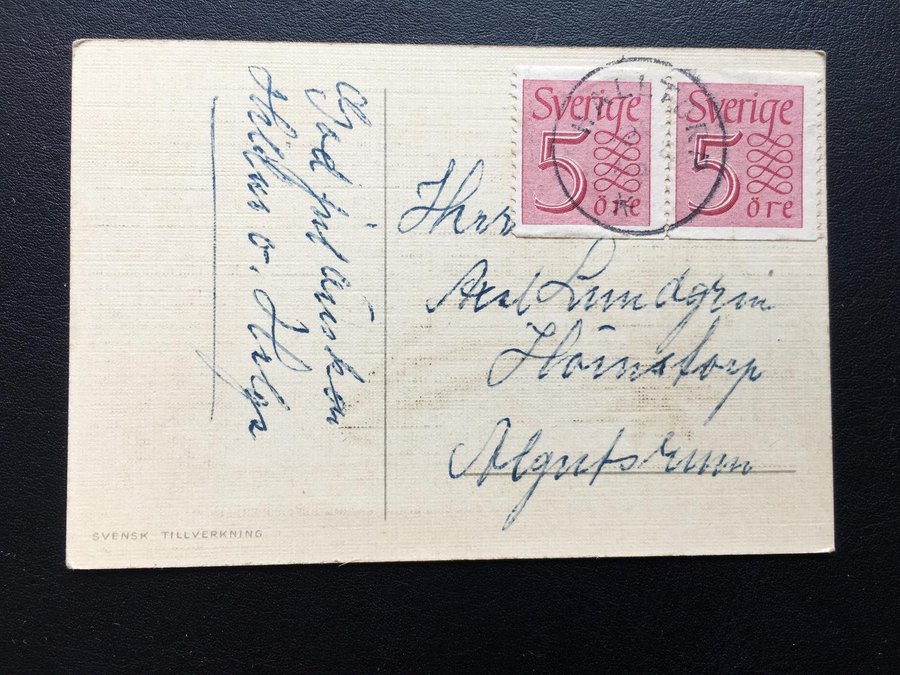 God Jul önskar
o. Helge
Sverige
5
öre
Sverige
5
öre
Herr
Axel Lundgren
Hörnstorp
Algutsrum
SVENSK TILLVERKNING